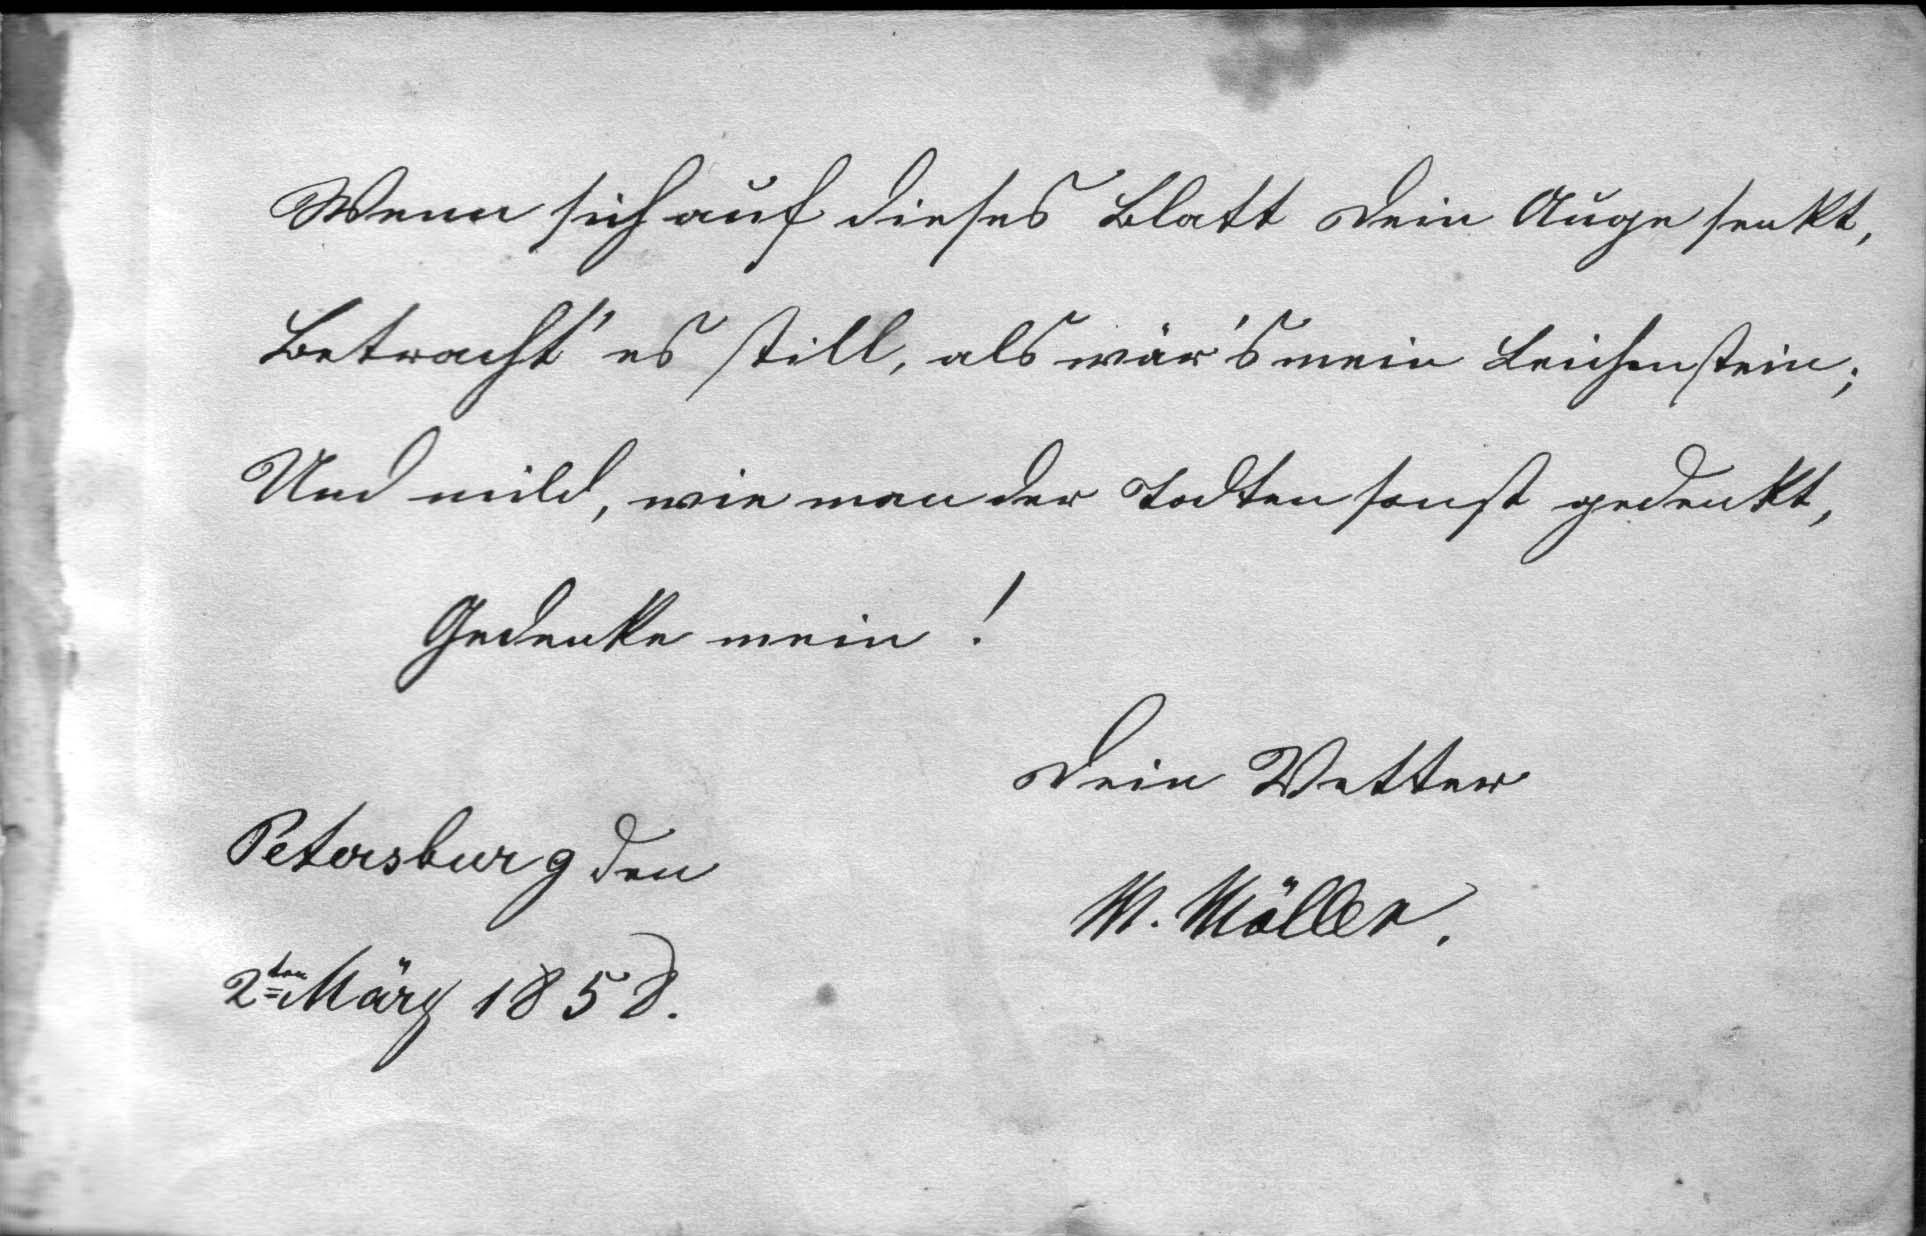 Wenn sich auf dieses Blatt Dein Auge senkt,
Betracht' es still, als wär's mein Leichenstein;
Und mild, wie man der Todten sonst gedenkt,
Gedenke mein!
Dein Vetter
W. Möller.
Petersburg den
2ten März 1858.